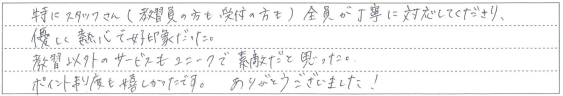 特にスタッフさん(教習員の方も受付の方も)全員が丁寧に対応してくださり、
優しく熱心で好印象だった。
教習以外のサービスもユニークで素敵だと思った。
ポイント制度も嬉しかったです。 ありがとうございました!